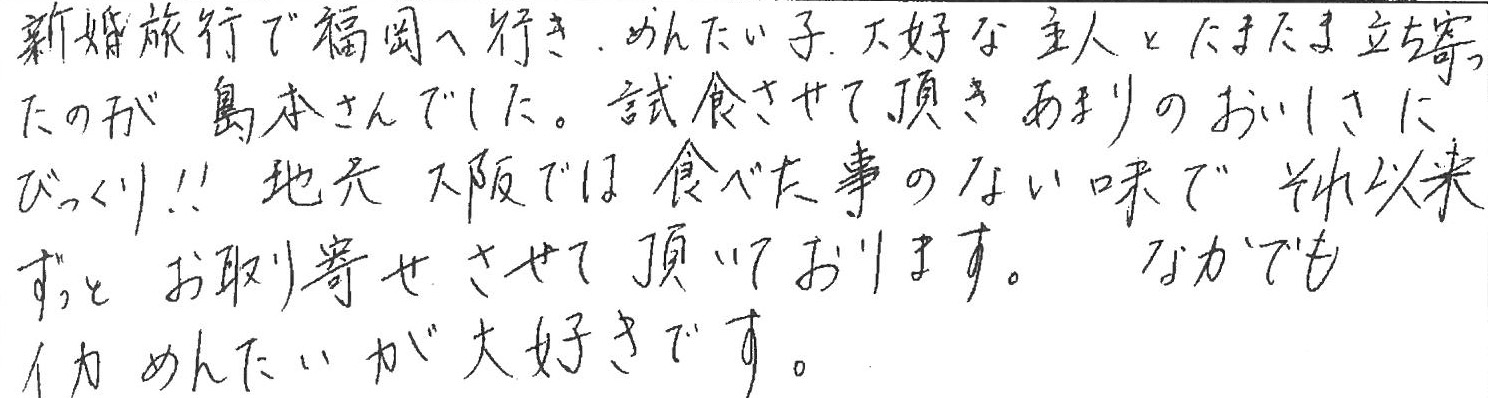 新婚旅行で福岡へ行き、めんたい子、大好な主人とたまたま立ち寄っ
たのが 島本さんでした。試食させて頂きあまりのおいしさに
びっくり!! 地元 大阪では食べた事のない味で それ以来
ずっと お取り寄せさせて頂いております。 なかでも
イカめんたいが大好きです。